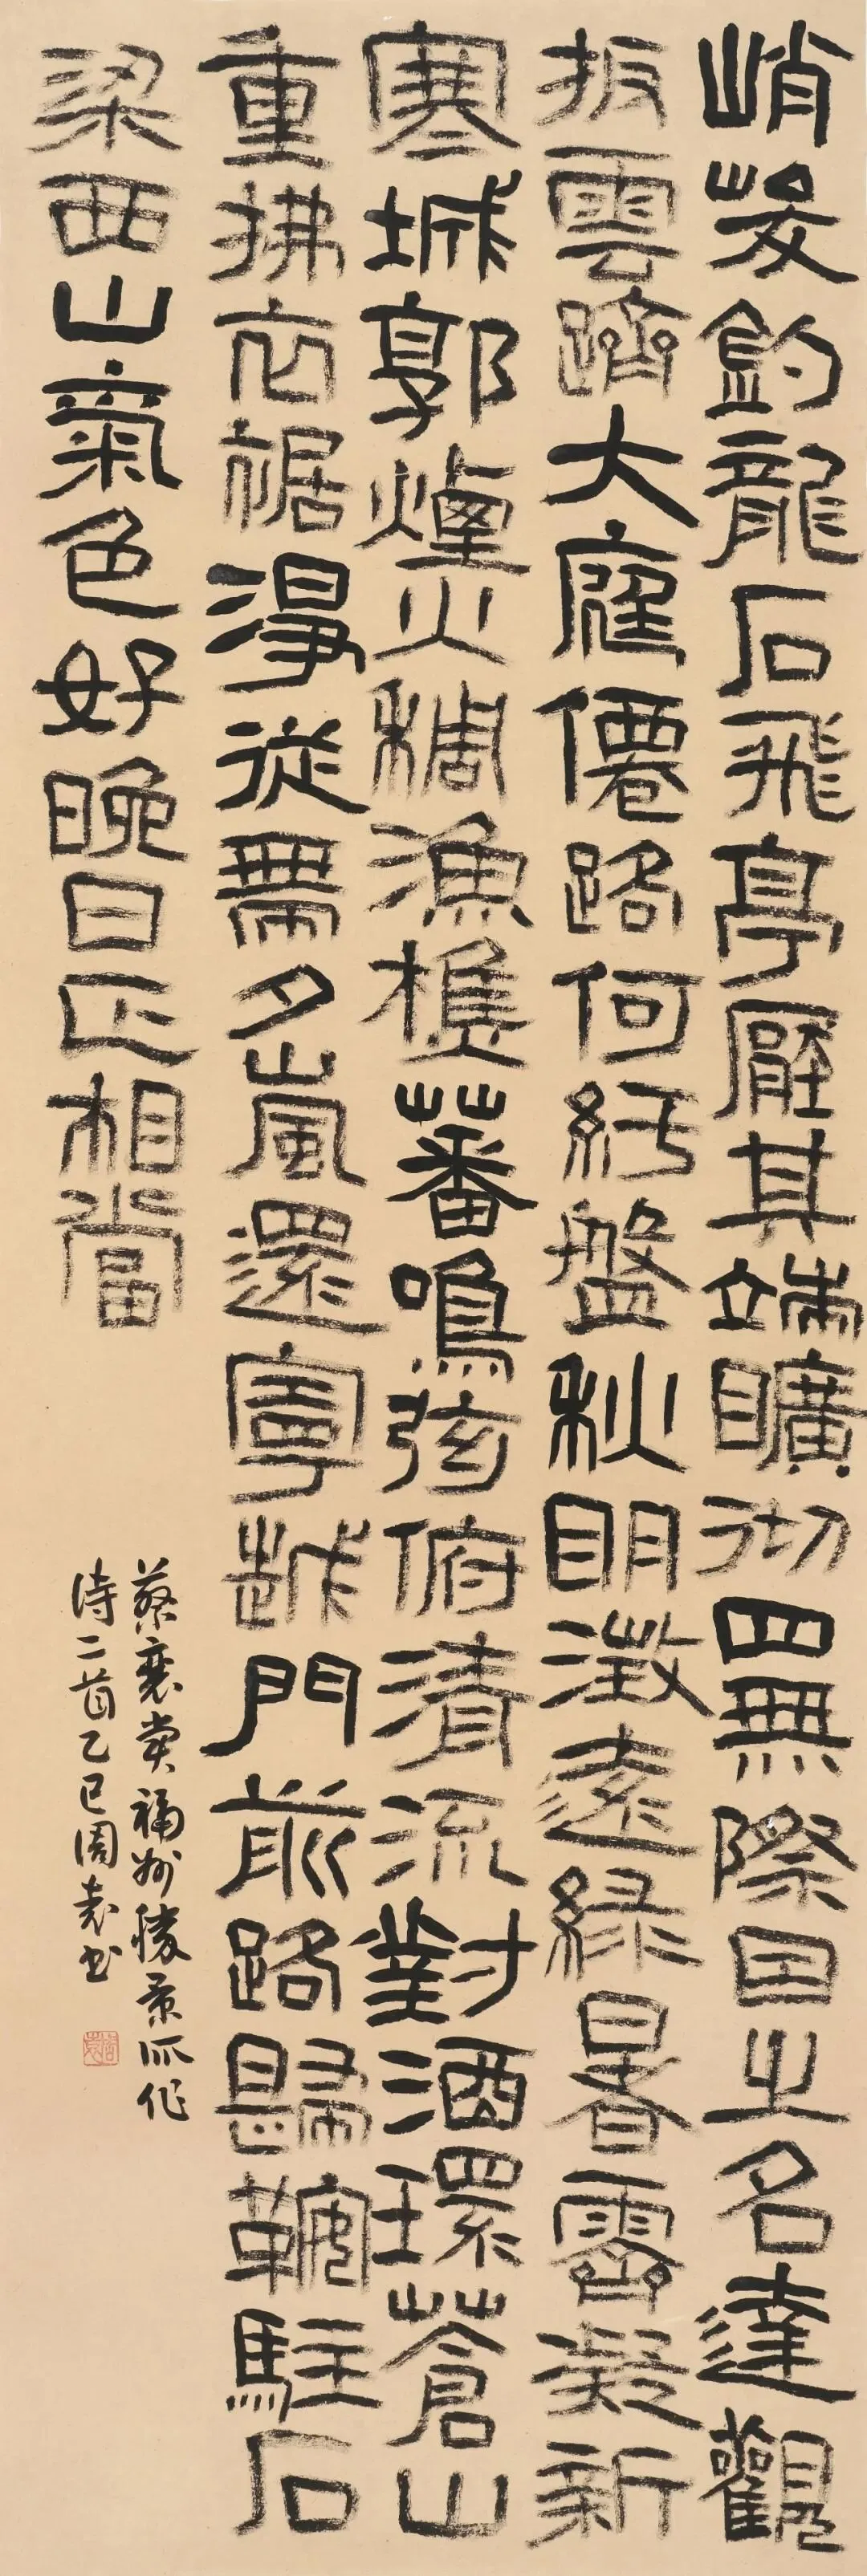 峭拔釣龍石飛亭壓其端曠澈四無際國之名達觀
扳雲躋大庭僊路何紆盤秋明澂遠綠暑霽凝新
寒城郭煙火稠漁樵蕃鳴弦俯清流對酒環蒼山
重拂衣裾淨從需夕嵐還寧越門前路歸鞍駐石
梁西山氣色好晚日正相當
蔡襄賞福州勝景所作
詩二首乙巳周袁書